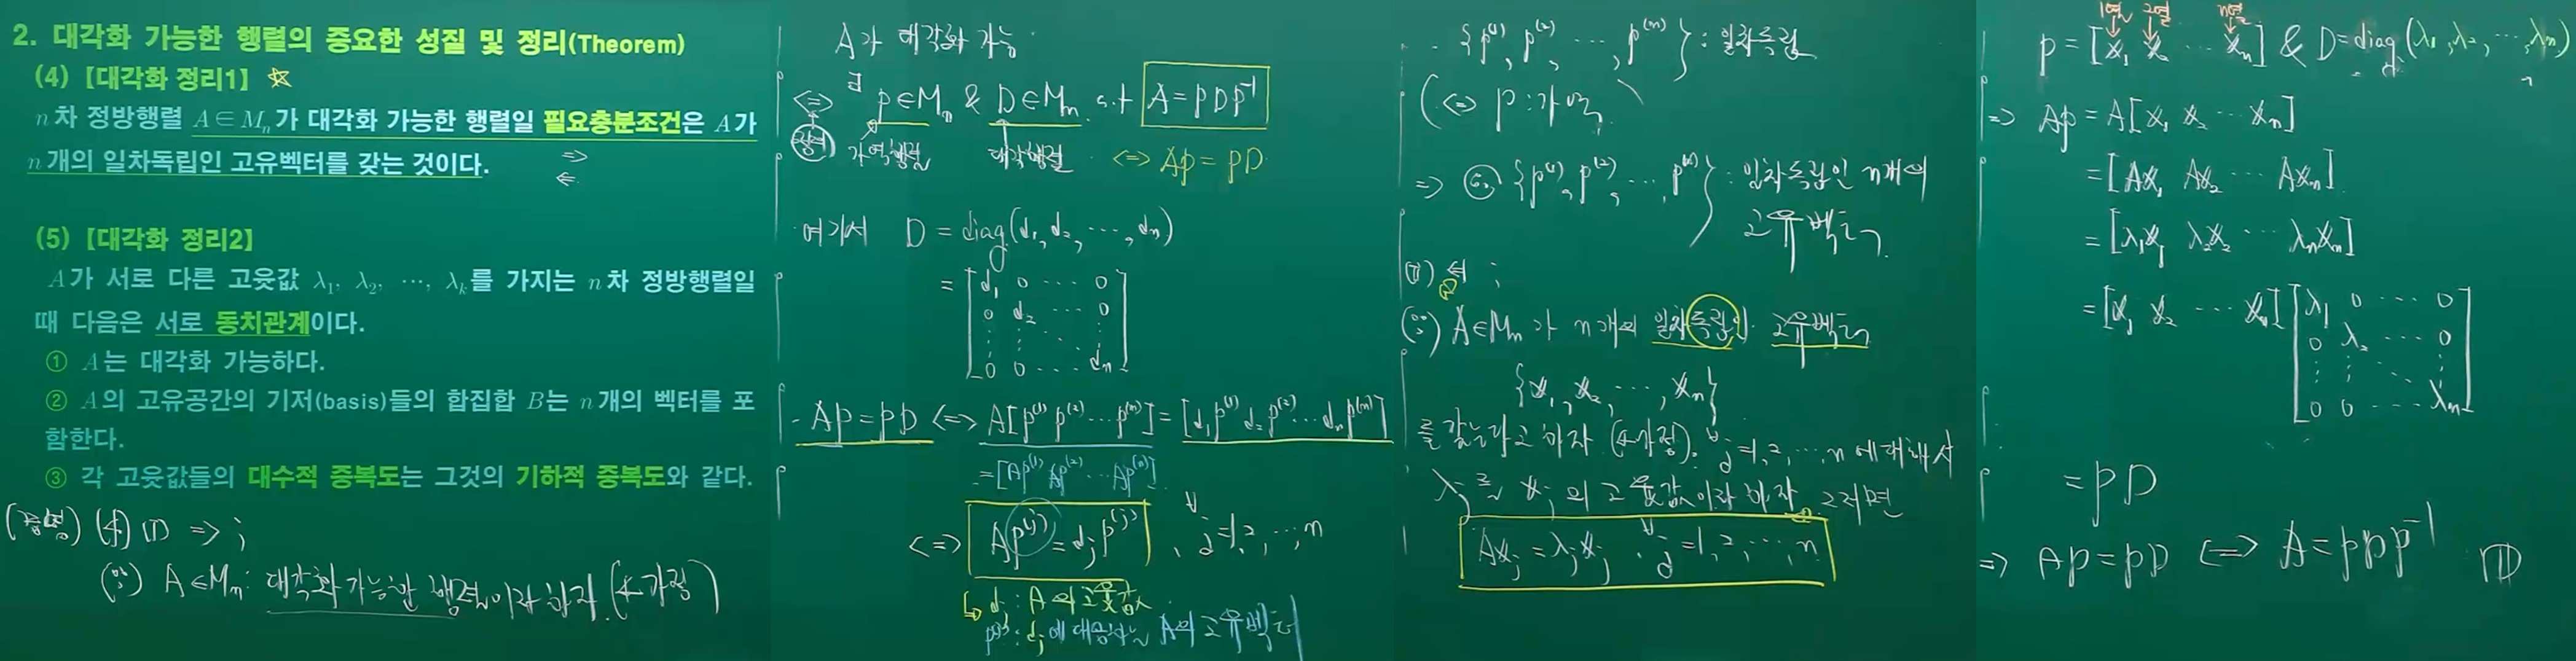 2. 대각화 가능한 행렬의 중요한 성질 및 정리(Theorem)
(4) [대각화 정리1] ☆
n차 정방행렬 A∈Mₙ가 대각화 가능한 행렬일 필요충분조건은 A가
n개의 일차독립인 고유벡터를 갖는 것이다.
⇒
⇐
(5) [대각화 정리2]
A가 서로 다른 고윳값 λ₁, λ₂, ⋯, λₖ를 가지는 n차 정방행렬일
때 다음은 서로 동치관계이다.
① A는 대각화 가능하다.
② A의 고유공간의 기저(basis)들의 합집합 B는 n개의 벡터를 포
함한다.
③ 각 고윳값들의 대수적 중복도는 그것의 기하적 중복도와 같다.
(증명) (4) (I) ⇒ ;
(∵) A∈Mₙ: 대각화 가능한 행렬이라 하자. (←가정)
A가 대각화 가능
⇔ ∃ P∈Mₙ & D∈Mₙ s.t A=PDP⁻¹
정의 가역행렬 대각행렬 ⇔ AP=PD
여기서 D = diag(d₁, d₂, ⋯, dₙ)
= [d₁ 0 ⋯ 0
0 d₂ ⋯ 0
⋮ ⋮ ⋱ ⋮
0 0 ⋯ dₙ]
- AP=PD ⇔ A[p⁽¹⁾ p⁽²⁾ ⋯ p⁽ⁿ⁾] = [d₁p⁽¹⁾ d₂p⁽²⁾ ⋯ dₙp⁽ⁿ⁾]
=[Ap⁽¹⁾ Ap⁽²⁾ ⋯ Ap⁽ⁿ⁾]
⇔ Ap⁽ʲ⁾=dⱼp⁽ʲ⁾, ∀j=1,2,⋯,n
↳ dⱼ : A의 고윳값
p⁽ʲ⁾ : dⱼ에 대응하는 A의 고유벡터
- {p⁽¹⁾, p⁽²⁾, ⋯, p⁽ⁿ⁾} : 일차독립
(⇔ P : 가역)
⇒ ∴ {p⁽¹⁾, p⁽²⁾, ⋯, p⁽ⁿ⁾} : 일차독립인 n개의
고유벡터
(II) ⇐ ;
(∵) A∈Mₙ가 n개의 일차독립인 고유벡터
{x₁, x₂, ⋯, xₙ}
를 갖는다고 하자 (←가정). ∀j=1,2,⋯,n에 대해서
λⱼ를 xⱼ의 고윳값이라 하자. 그러면
Axⱼ=λⱼxⱼ, ∀j=1,2,⋯,n
1열 2열 n열
P = [x₁ x₂ ⋯ xₙ] & D=diag(λ₁, λ₂, ⋯, λₙ)
⇒ AP = A[x₁ x₂ ⋯ xₙ]
= [Ax₁ Ax₂ ⋯ Axₙ]
= [λ₁x₁ λ₂x₂ ⋯ λₙxₙ]
= [x₁ x₂ ⋯ xₙ] [λ₁ 0 ⋯ 0
0 λ₂ ⋯ 0
⋮ ⋮ ⋮
0 0 ⋯ λₙ]
= PD
⇒ AP=PD ⇔ A=PDP⁻¹